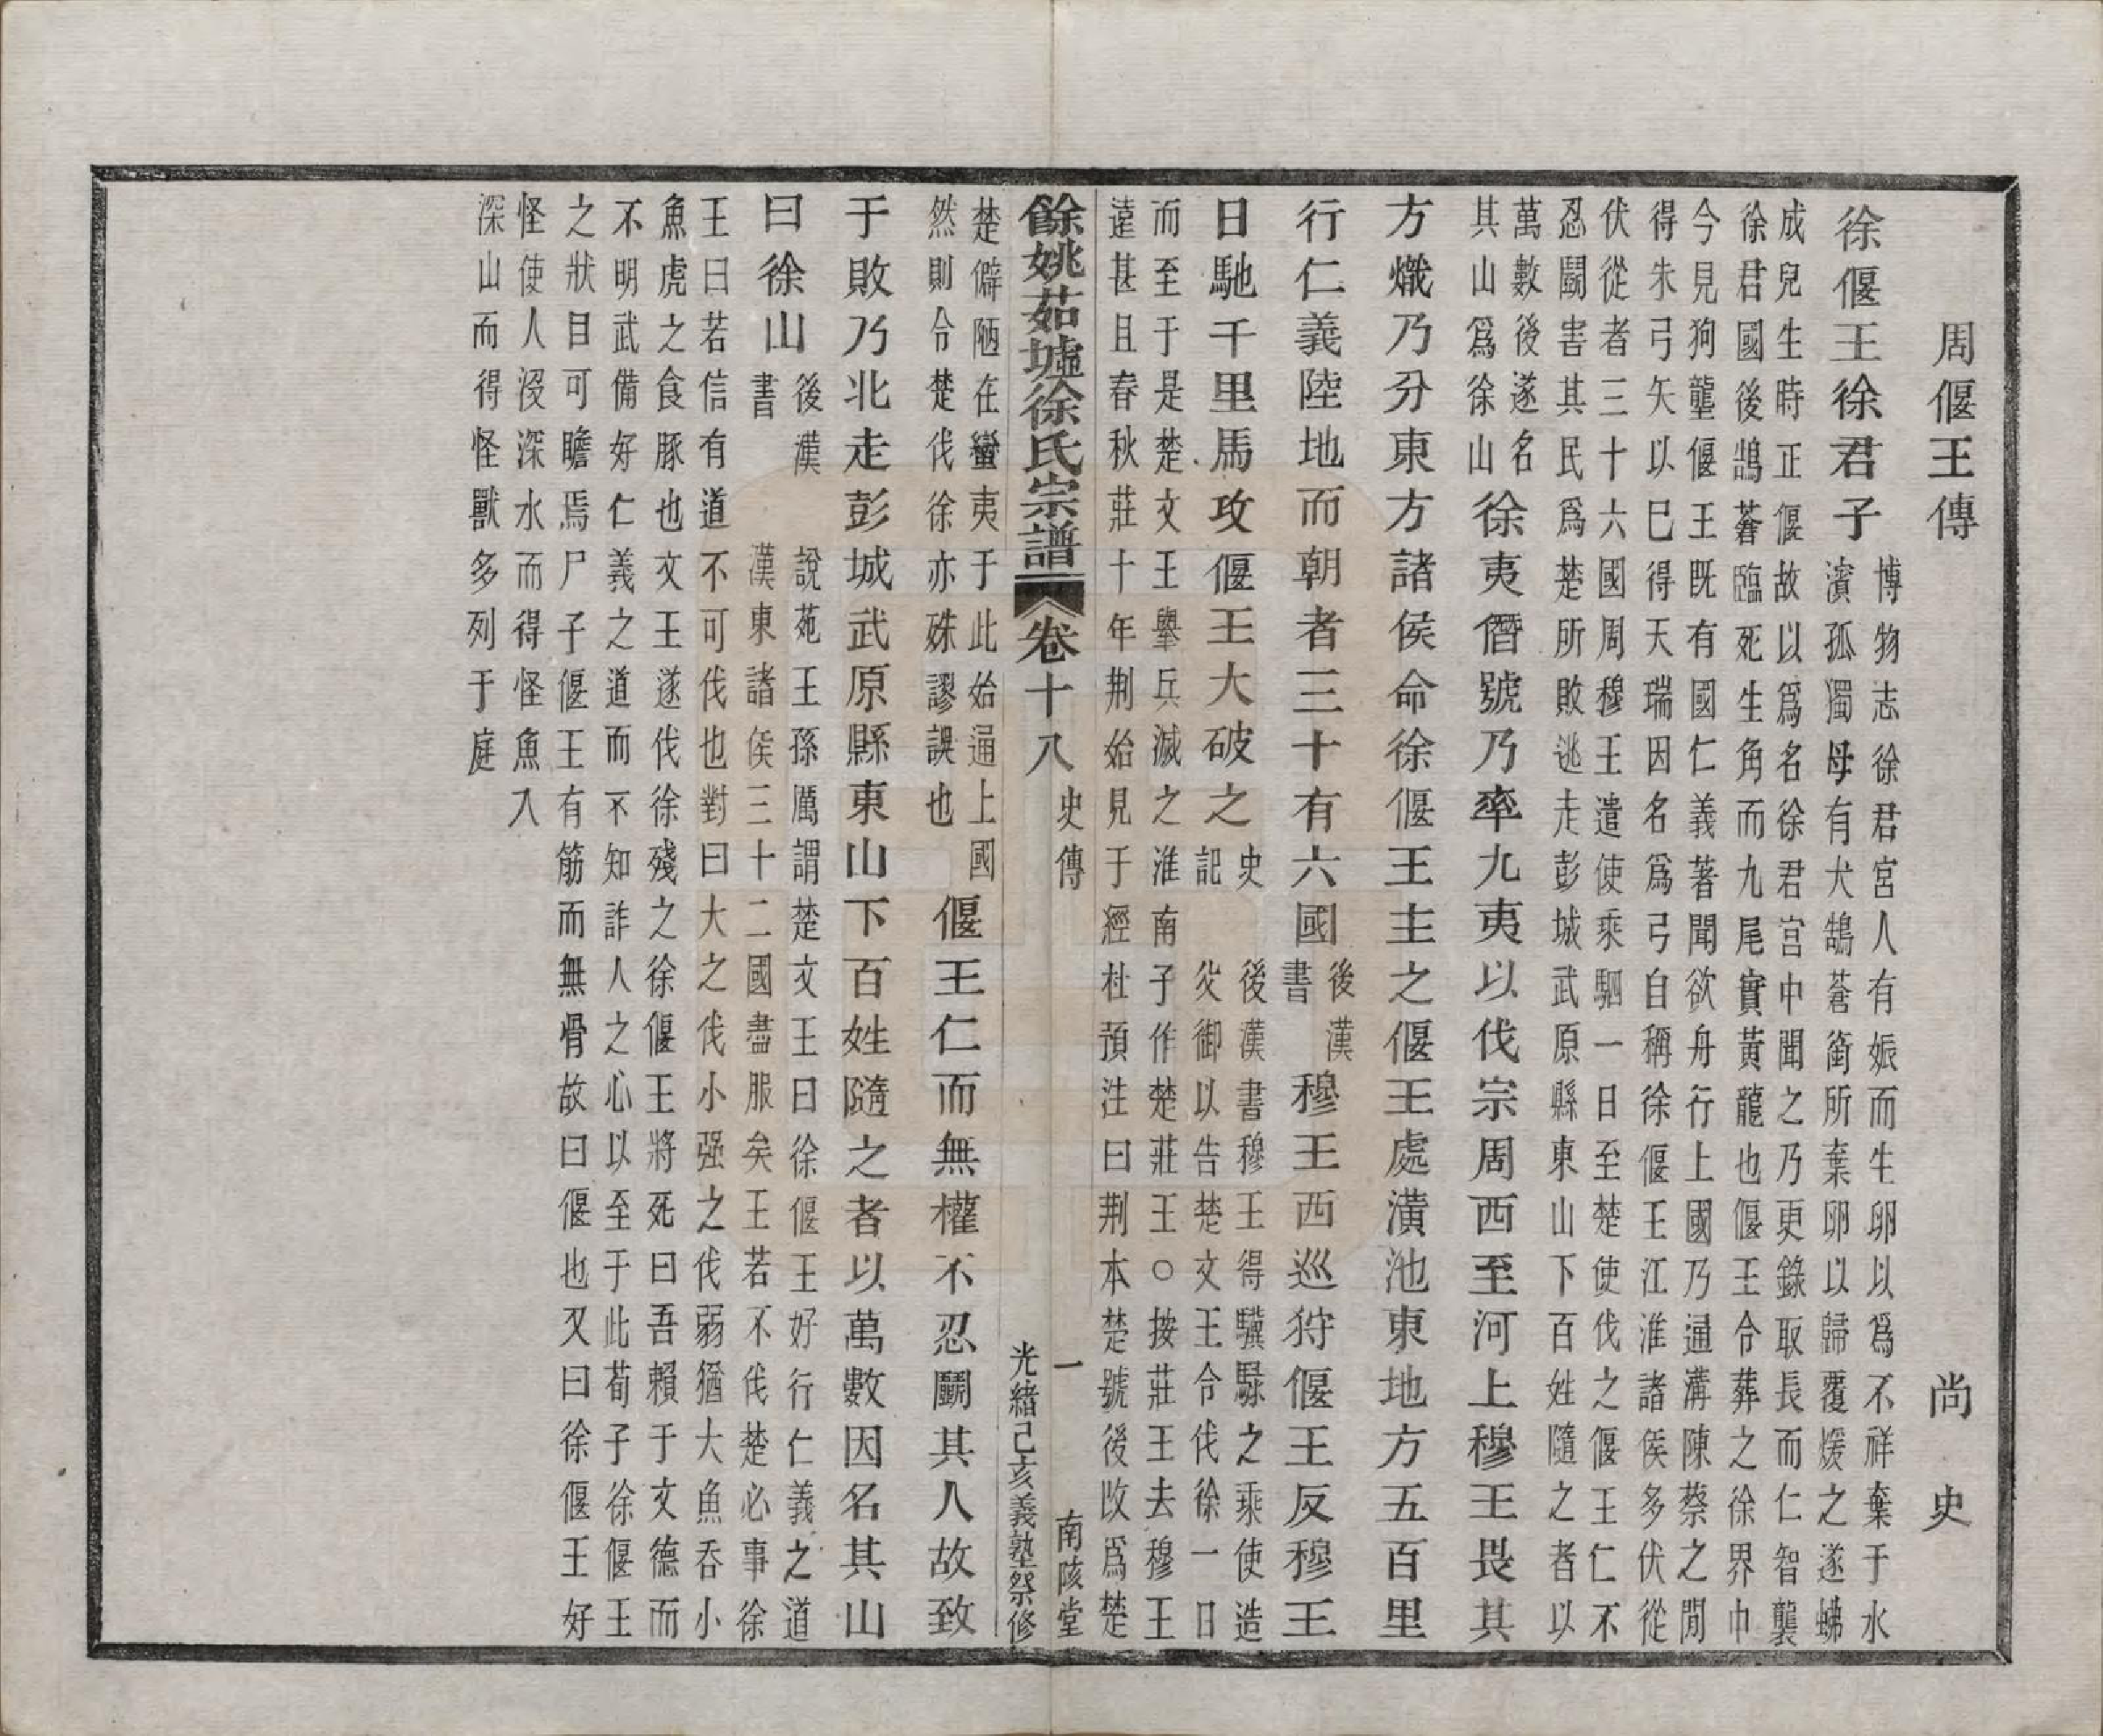 周偃王傳　尚史
徐偃王徐君子
博物志徐君宮人有娠而生卵以爲不祥棄于水
濱孤獨母有犬鵠蒼銜所棄卵以歸覆煖之遂𫊸
成兒生時正偃故以爲名徐君宮中聞之乃更錄取長而仁智襲
徐君國後鵠蒼臨死生角而九尾實黃龍也偃王令葬之徐界中
今見狗壟偃王既有國仁義著聞欲舟行上國乃通溝陳蔡之閒
得朱弓矢以巳得天瑞因名爲弓自稱徐偃王江淮諸侯多伏從
伏從者三十六國周穆王遣使乘駟一日至楚使伐之偃王仁不
忍鬭害其民爲楚所敗逃走彭城武原縣東山下百姓隨之者以
萬數後遂名
其山爲徐山
徐夷僭號乃率九夷以伐宗周西至河上穆王畏其
方熾乃分東方諸侯命徐偃王主之偃王處潢池東地方五百里
行仁義陸地而朝者三十有六國
後漢
書
穆王西巡狩偃王反穆王
日馳千里馬攻偃王大破之
史
記
後漢書穆王得驥騄之乘使造
父御以告楚文王令伐徐一日
而至于是楚文王舉兵滅之淮南子作楚莊王○按莊王去穆王
遠甚且春秋莊十年荆始見于經杜預注曰荆本楚號後改爲楚
餘姚茹墟徐氏宗譜　卷十八　史傳　一　南陔堂
光緒己亥義塾祭修
楚僻陋在蠻夷于此始通上國
然則令楚伐徐亦殊謬誤也
偃王仁而無權不忍鬭其人故致
于敗乃北走彭城武原縣東山下百姓隨之者以萬數因名其山
曰徐山
後漢
書
說苑王孫厲謂楚文王曰徐偃王好行仁義之道
漢東諸侯三十二國盡服矣王若不伐楚必事徐
王曰若信有道不可伐也對曰大之伐小强之伐弱猶大魚吞小
魚虎之食豚也文王遂伐徐殘之徐偃王將死曰吾賴于文德而
不明武備好仁義之道而不知詐人之心以至于此荀子徐偃王
之狀目可瞻焉尸子偃王有筋而無骨故曰偃也又曰徐偃王好
怪使人沒深水而得怪魚入
深山而得怪獸多列于庭